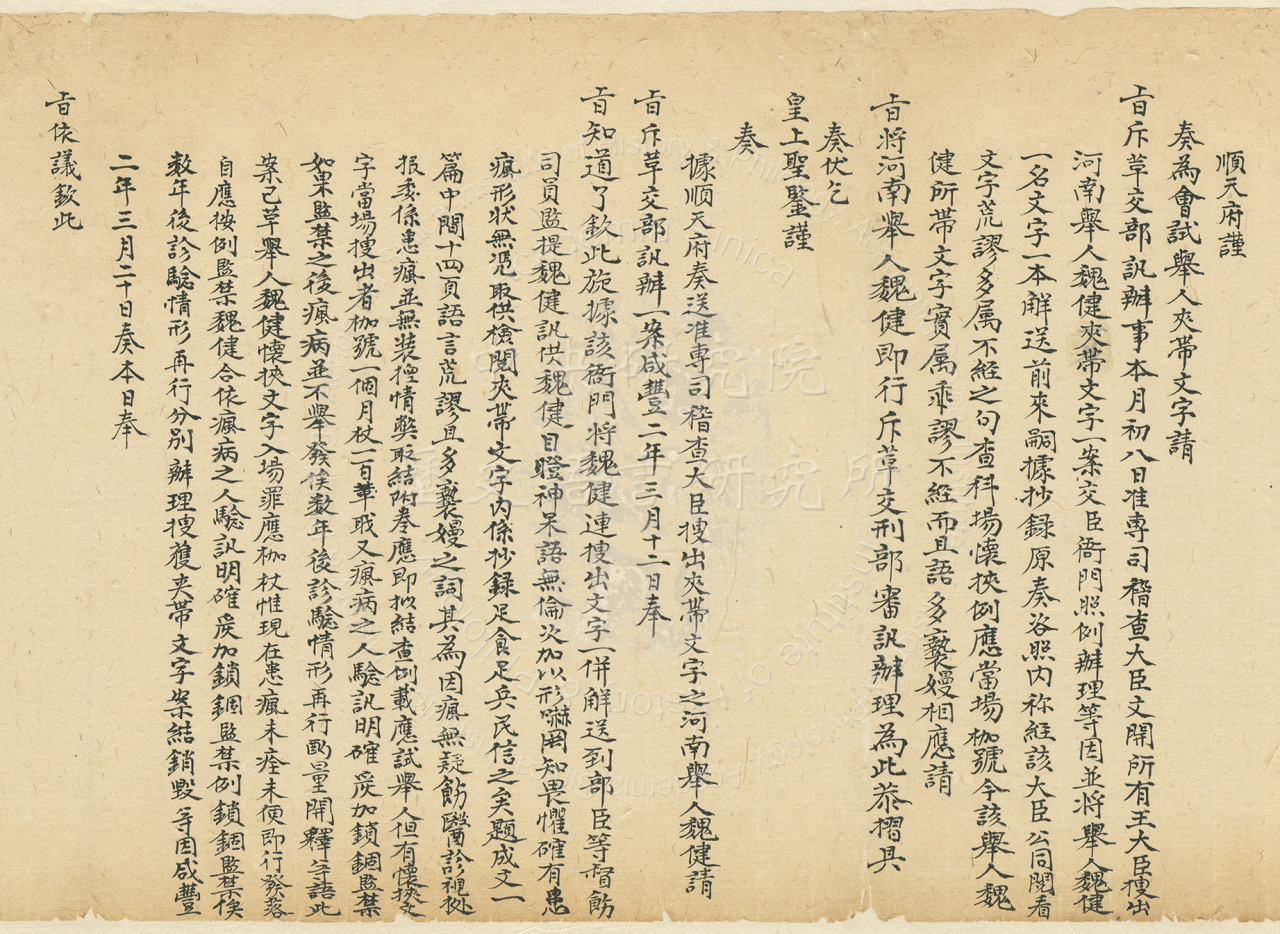 順天府謹
奏為會試舉人夾帶文字請
旨斥革交部訊辦事本月初八日准專司稽查大臣文開所有王大臣搜出
河南舉人魏健夾帶文字一案交臣衙門照例辦理等因並將舉人魏健
一名文字一本解送前來嗣據抄錄原奏咨照內称經該大臣公同閱看
文字荒謬多属不經之句查科場懷挾例應當場枷號今該舉人魏
健所帶文字實属乖謬不經而且語多褻嫚相應請
旨將河南舉人魏健即行斥革交刑部審訊辦理為此恭摺具
奏伏乞
皇上聖鑒謹
奏
據順天府奏送准專司稽查大臣搜出夾帶文字之河南舉人魏健請
旨斥革交部訊辦一案咸豐二年三月十二日奉
旨知道了欽此旋據該衙門將魏健連搜出文字一併解送到部臣等督飭
司員監提魏健訊供魏健目瞪神呆語無倫次加以形嚇罔知畏懼確有患
瘋形狀無凴取供檢閱夾帶文字內係抄錄足食足兵民信之矣題成文一
篇中間十四頁語言荒謬且多褻嫚之詞其為因瘋無疑飭醫診視処
报委係患瘋並無装揑情獘取結附卷應即拟結查例載應試舉人但有懷挾文
字當場搜出者枷號一個月杖一百革戝又瘋病之人驗訊明確嚴加鎖錮監禁
如果監禁之後瘋病並不舉發俟数年後診驗情形再行酌量開釋等語此
案已革舉人魏健懷挾文字入場罪應枷杖惟現在患瘋未痊未便即行發落
自應按例監禁魏健合依瘋病之人驗訊明確嚴加鎖錮監禁例鎖錮監禁俟
数年後診驗情形再行分別辦理搜獲夾帶文字案結銷毀等因咸豐
二年三月二十日奏本日奉
旨依議欽此